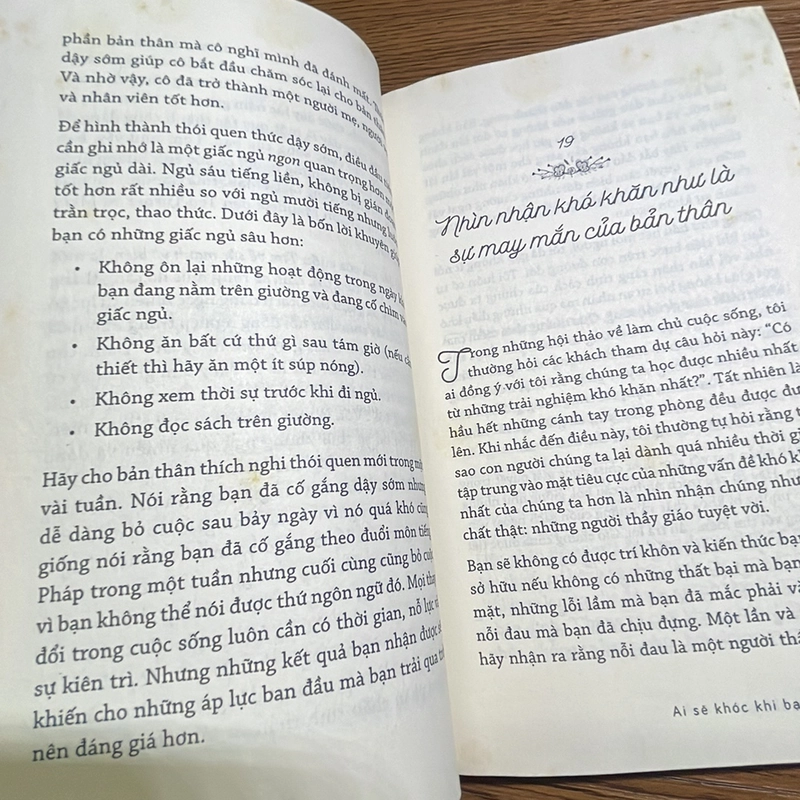 phần bản thân mà cô nghĩ mình đã đánh mất.
dậy sớm giúp cô bắt đầu chăm sóc lại cho bản
Và nhờ vậy, cô đã trở thành một người mẹ,
và nhân viên tốt hơn.
Để hình thành thói quen thức dậy sớm, điều đầu
cần ghi nhớ là một giấc ngủ ngon quan trọng hơn
giấc ngủ dài. Ngủ sáu tiếng liền, không bị gián
tốt hơn rất nhiều so với ngủ mười tiếng nhưng
trằn trọc, thao thức. Dưới đây là bốn lời khuyên
bạn có những giấc ngủ sâu hơn:
• Không ôn lại những hoạt động trong ngày
bạn đang nằm trên giường và đang cố chìm
giấc ngủ.
• Không ăn bất cứ thứ gì sau tám giờ (nếu
thiết thì hãy ăn một ít súp nóng).
• Không xem thời sự trước khi đi ngủ.
• Không đọc sách trên giường.
Hãy cho bản thân thích nghi thói quen mới trong
vài tuần. Nói rằng bạn đã cố gắng dậy sớm
dễ dàng bỏ cuộc sau bảy ngày vì nó quá khó
giống nói rằng bạn đã cố gắng theo đuổi môn
Pháp trong một tuần nhưng cuối cùng cũng bỏ
vì bạn không thể nói được thứ ngôn ngữ đó. Mọi
đổi trong cuộc sống luôn cần có thời gian, nỗ lực
sự kiên trì. Nhưng những kết quả bạn nhận được
khiến cho những áp lực ban đầu mà bạn trải qua
nên đáng giá hơn.
19
Nhìn nhận khó khăn như là
sự may mắn của bản thân
Trong những hội thảo về làm chủ cuộc sống, tôi
thường hỏi các khách tham dự câu hỏi này: “Có
ai đồng ý với tôi rằng chúng ta học được nhiều nhất
từ những trải nghiệm khó khăn nhất?”. Tất nhiên là
hầu hết những cánh tay trong phòng đều được
lên. Khi nhắc đến điều này, tôi thường tự hỏi rằng
sao con người chúng ta lại dành quá nhiều thời
tập trung vào mặt tiêu cực của những vấn đề khó
nhất của chúng ta hơn là nhìn nhận chúng như
chất thật: những người thầy giáo tuyệt vời.
Bạn sẽ không có được trí khôn và kiến thức bạn
sở hữu nếu không có những thất bại mà bạn
mặt, những lỗi lầm mà bạn đã mắc phải và
nỗi đau mà bạn đã chịu đựng. Một lần và
hãy nhận ra rằng nỗi đau là một người
Ai sẽ khóc khi